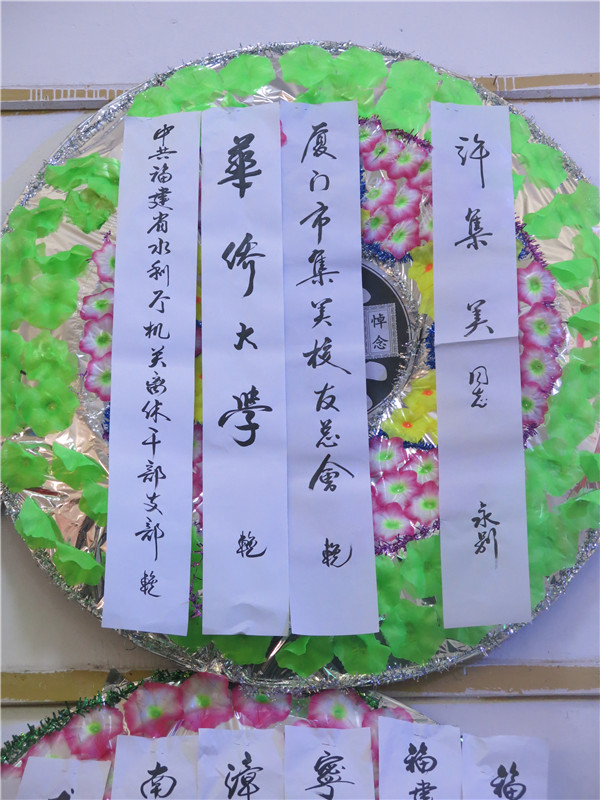 许集美同志 永别
悼念
厦门市集美校友总會 輓
華侨大學 輓
中共福建省水利厅机关离休干部支部 輓
福
福建
寧
漳
南